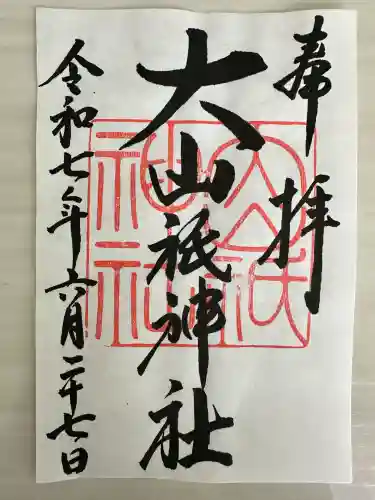 奉拝
大山祇神社
令和七年六月二十七日